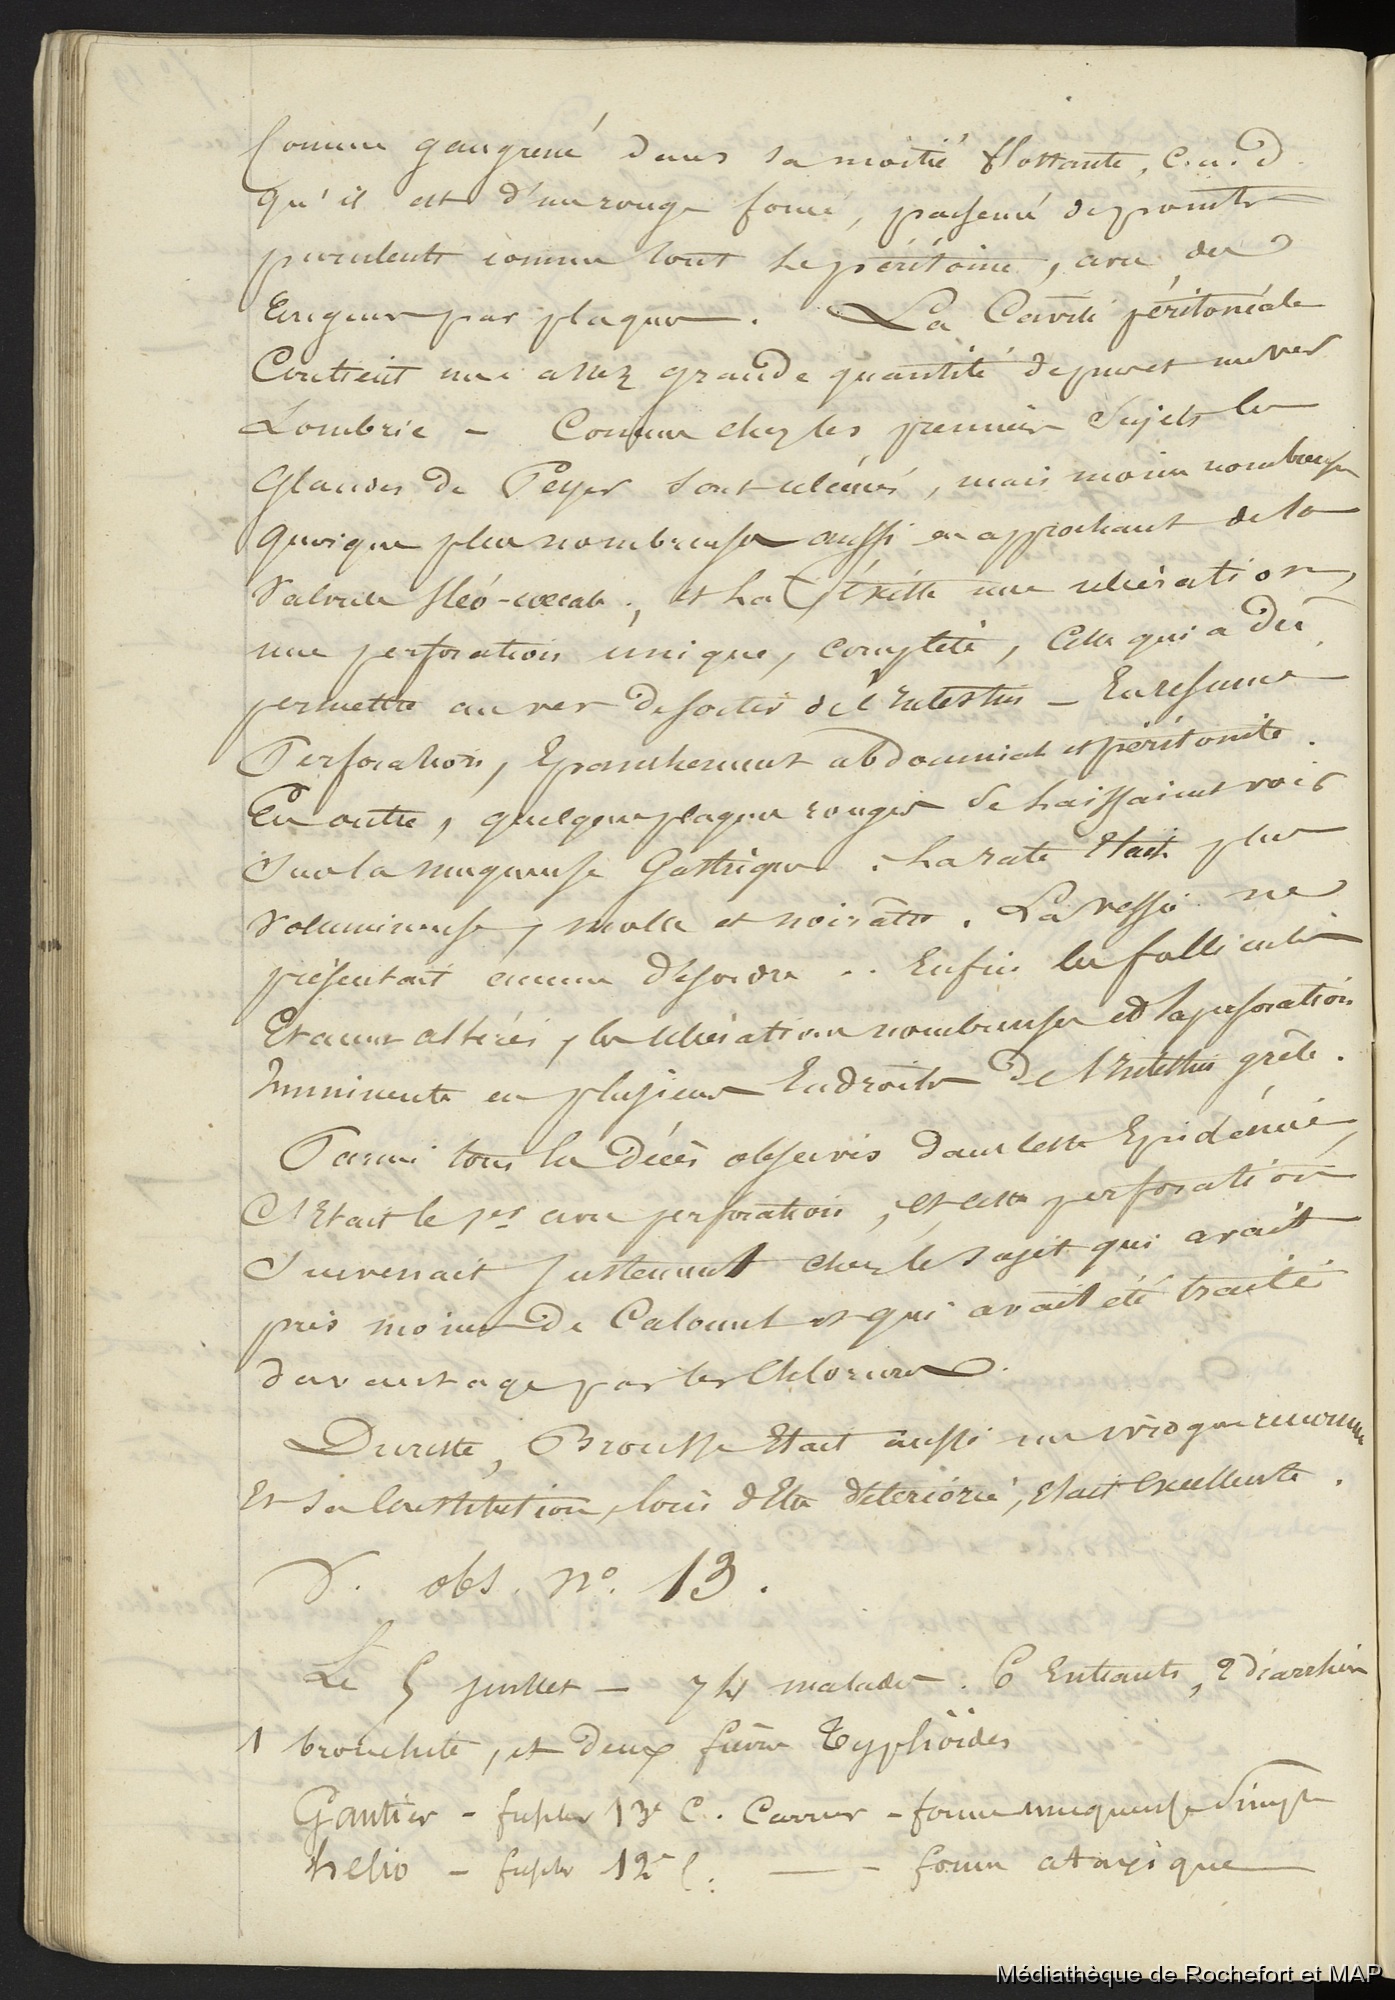 Comme gangrené dans sa moitié flottante, c.a.d.
qu'il est d'un rouge foncé, parsemé de points
purulents comme tout le péritoine, avec des
rougeurs par plaques. La Cavité péritonéale
Contient une assez grande quantité de pus et un ver
Lombric – Comme chez les premiers Sujets les
Glandes de Peyer sont ulcérées, mais moins nombreuses
quoique plus nombreuses aussi en approchant de la
Valvule Iléo-coecale; et Là Existe une ulcération,
une perforation unique, complète, Celle qui a dû
permettre au ver de sortir de l'Intestin – En résumé
Perforation, Epanchement abdominal et péritonite.
En outre, quelques plaques rouges se laissaient voir
Sur la muqueuse Gastrique. La rate Etait plus
Volumineuse, molle et noirâtre. La vessie ne
présentait aucun désordre .. Enfin les follicules
Etaient altérés, les ulcérations nombreuses et la perforation
Imminente en plusieurs Endroits de l'Intestin grêle.
Parmi tous les Décès observés dans cette Epidémie,
C'Etait le 1er avec perforation, et cette perforation
Survenait Justement chez le sujet qui avait
pris moins de Calomel et qui avait été traité
davantage par les Chlorures.
Du reste, Brousse Etait aussi un ivrogne reconnu
Et sa Constitution, loin d'Etre détériorée, Etait Excellente.
V. obs. no. 13.
Le 5 juillet – 74 malades. 6 Entrants, 2 diarrhées
1 bronchite, et deux fièvres Typhoïdes
Gautier – fusilier 13e C. Carrer – forme muqueuse Simple
helio – fusilier 12e C. — – forme ataxique
Médiathèque de Rochefort et MAP